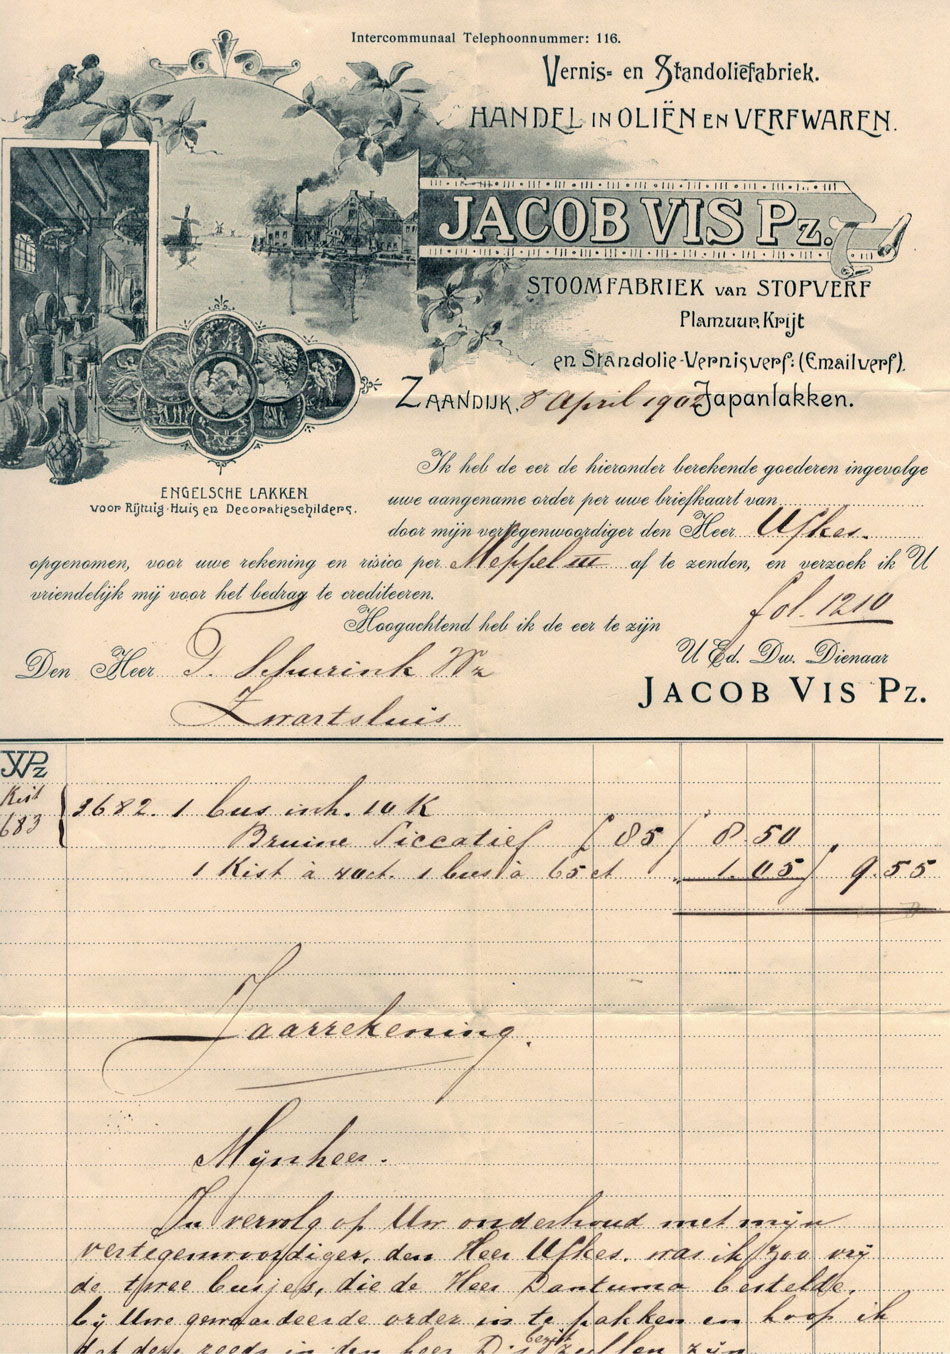 Intercommunaal Telephoonnummer: 116.
Vernis- en Standoliefabriek.
HANDEL IN OLIËN EN VERFWAREN.
JACOB VIS Pz.
STOOMFABRIEK van STOPVERF
Plamuur, Krijt
en Standolie-Vernisverf: (Emailverf).
ZAANDIJK, 8 April 1902 Japanlakken.
ENGELSCHE LAKKEN
voor Rijtuig-Huis en Decoratieschilders.
Ik heb de eer de hieronder berekende goederen ingevolge
uwe aangename order per uwe briefkaart van
door mijn vertegenwoordiger den Heer Ufkes.
opgenomen, voor uwe rekening en risico per Meppel III af te zenden, en verzoek ik U
vriendelijk mij voor het bedrag te crediteeren.
fol. 1210
Hoogachtend heb ik de eer te zijn
U Ed. Dw. Dienaar
JACOB VIS Pz.
Den Heer T. Schurink Wz
Zwartsluis
JVPz
Kist
683
3682. 1 bus inh. 10 K
Bruine Siccatief f 85 f 8.50
1 Kist à 40 ct. 1 bus à 65 ct „ 1.05 f 9.55
Jaarrekening.
Mijnheer.
In vervolg op Uw onderhoud met mijn
vertegenwoordiger, den Heer Ufkes, was ik zoo vrij
de twee busjes, die de Heer Dantuma bestelde,
bij Uwe gewaardeerde order in te pakken en hoop ik
dat deze reeds in den heer D's bezit zullen zijn